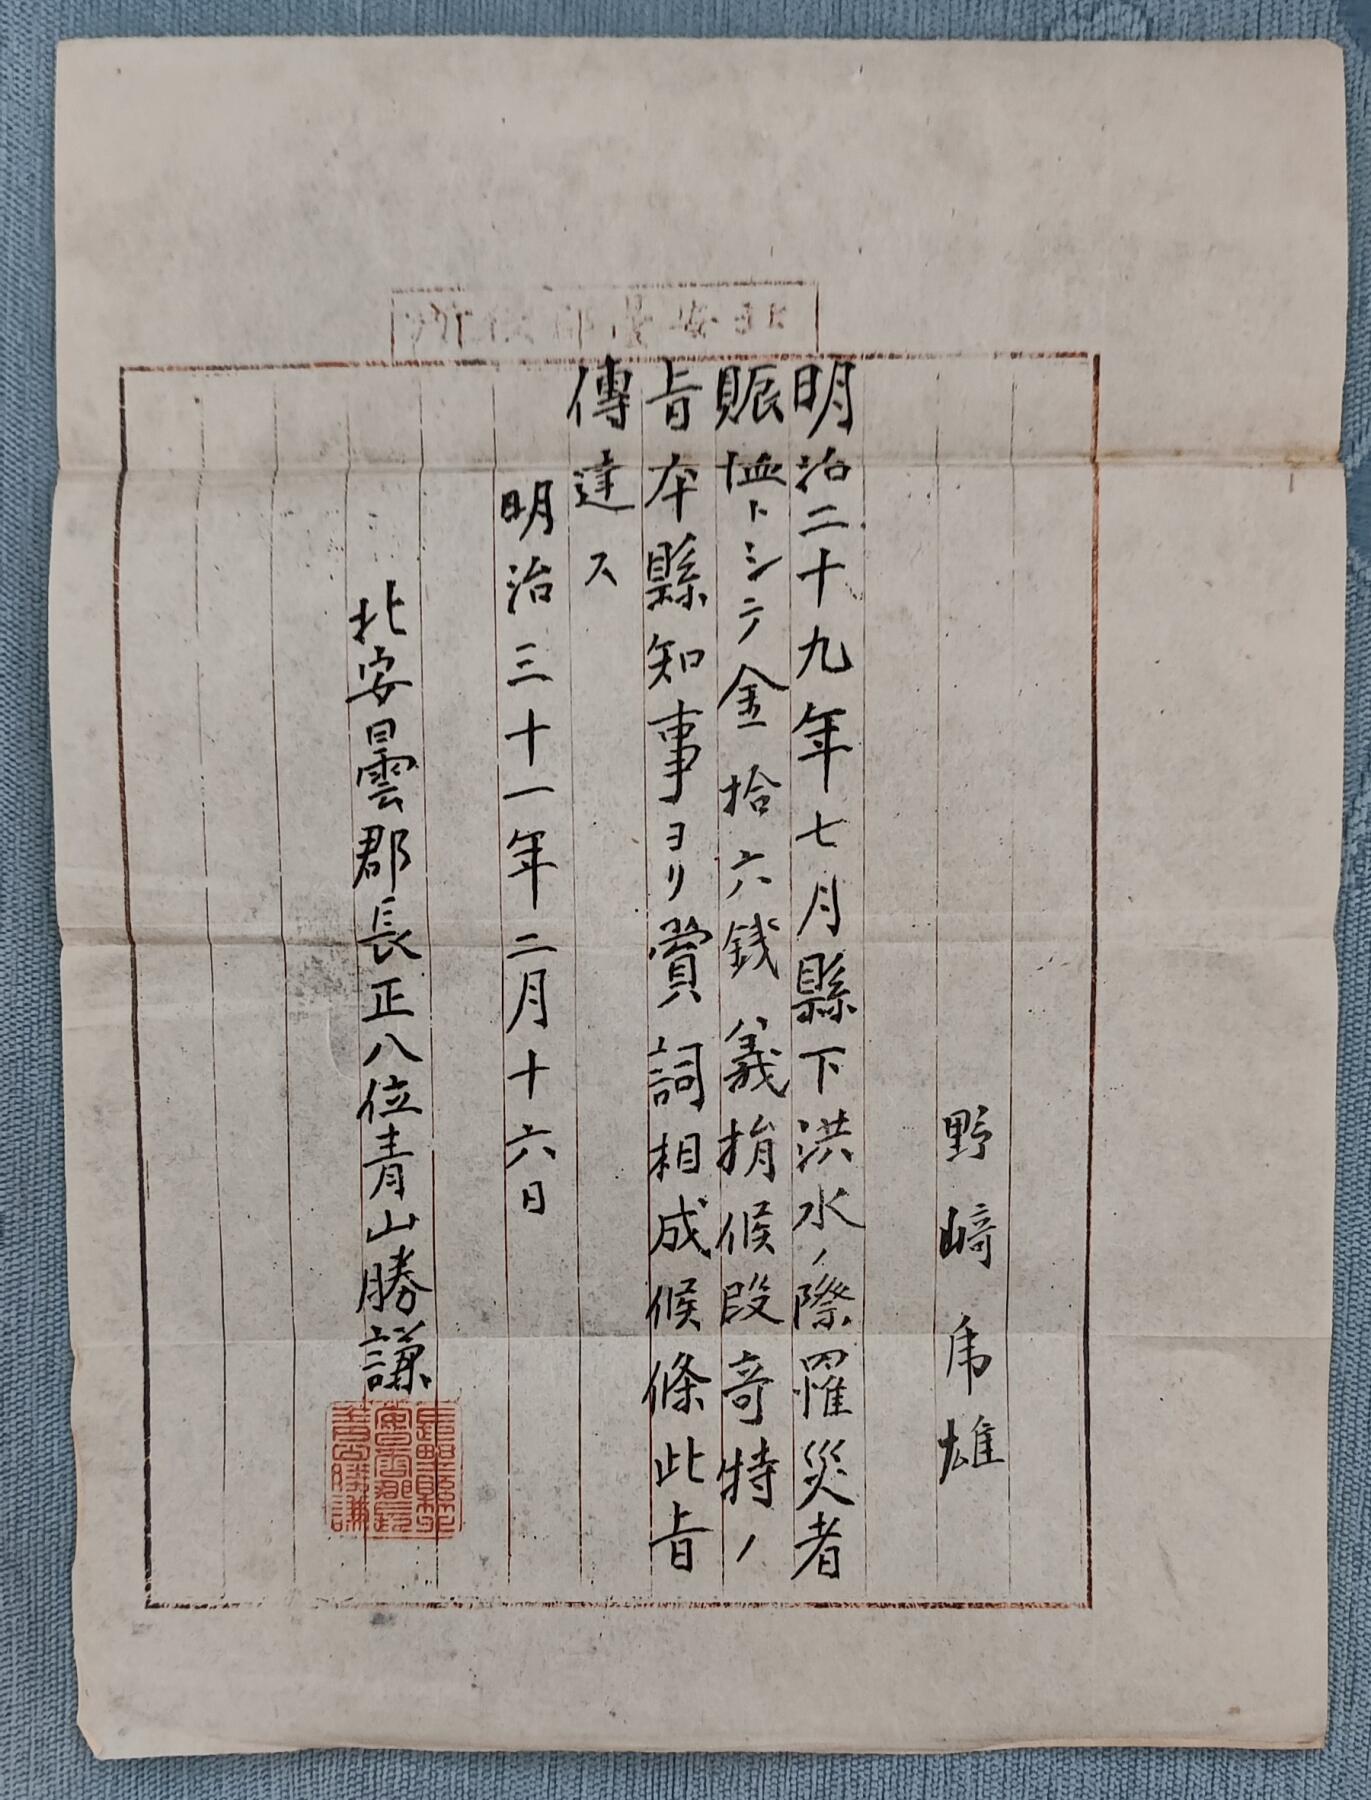 野﨑乕雄
明治二十九年七月縣下洪水ノ際罹災者
賑恤トシテ金拾六銭義捐候段奇特ノ
旨本縣知事ヨリ賞詞相成候條此旨
傳達ス
明治三十一年二月十六日
北安曇郡長正八位青山勝謙